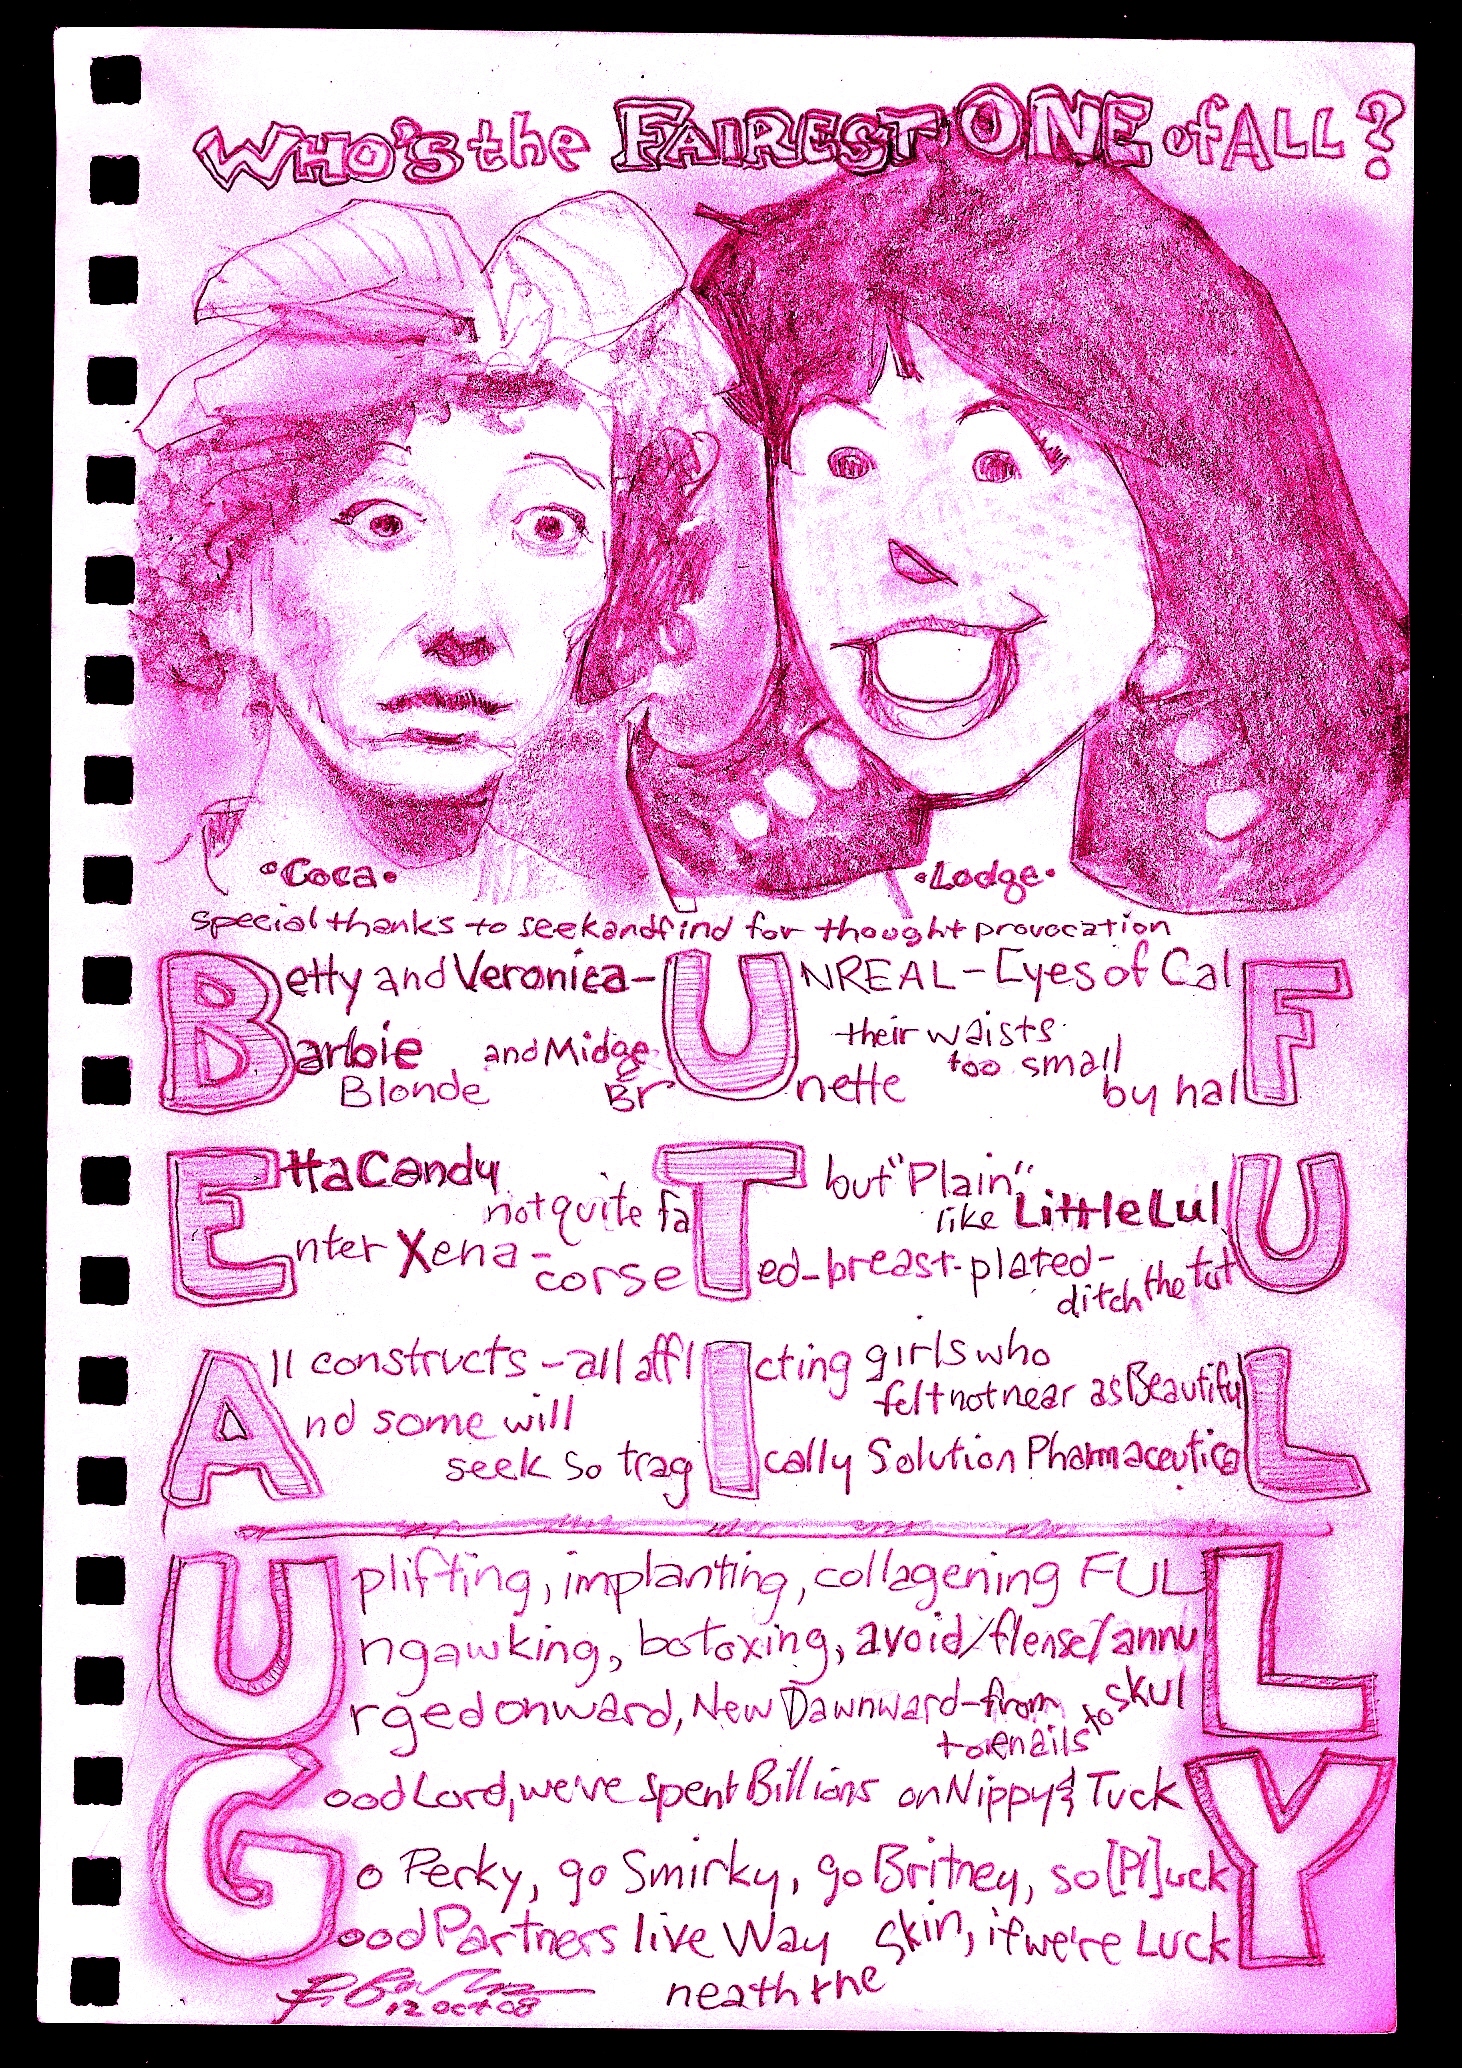 WHO'S the FAIREST ONE of ALL?
•Coca•
•Lodge•
special thanks to seekandfind for thought provocation
Betty and Veronica-UNREAL-Eyes of CalF
Barbie and Midge their waists too small
Blonde BrUnette by halF
Etta Candy not quite faT but "Plain" like Little LulU
Enter Xena-corseTed-breast-plated-ditch the tutU
All constructs-all afflIcting girls who felt not near as BeautifuL
And some will seek so tragIcally Solution PharmaceuticaL
Uplifting, implanting, collagening FULL
Ungawking, botoxing, avoid/flense/annuL
Urged onward, New Dawnward-from toenails to skulL
Good Lord, we've spent Billions on Nippy & TuckY
Go Perky, go Smirky, go Britney, so [Pl]uckY
Good Partners live Way neath the skin, if we're LuckY
12 OCT 08